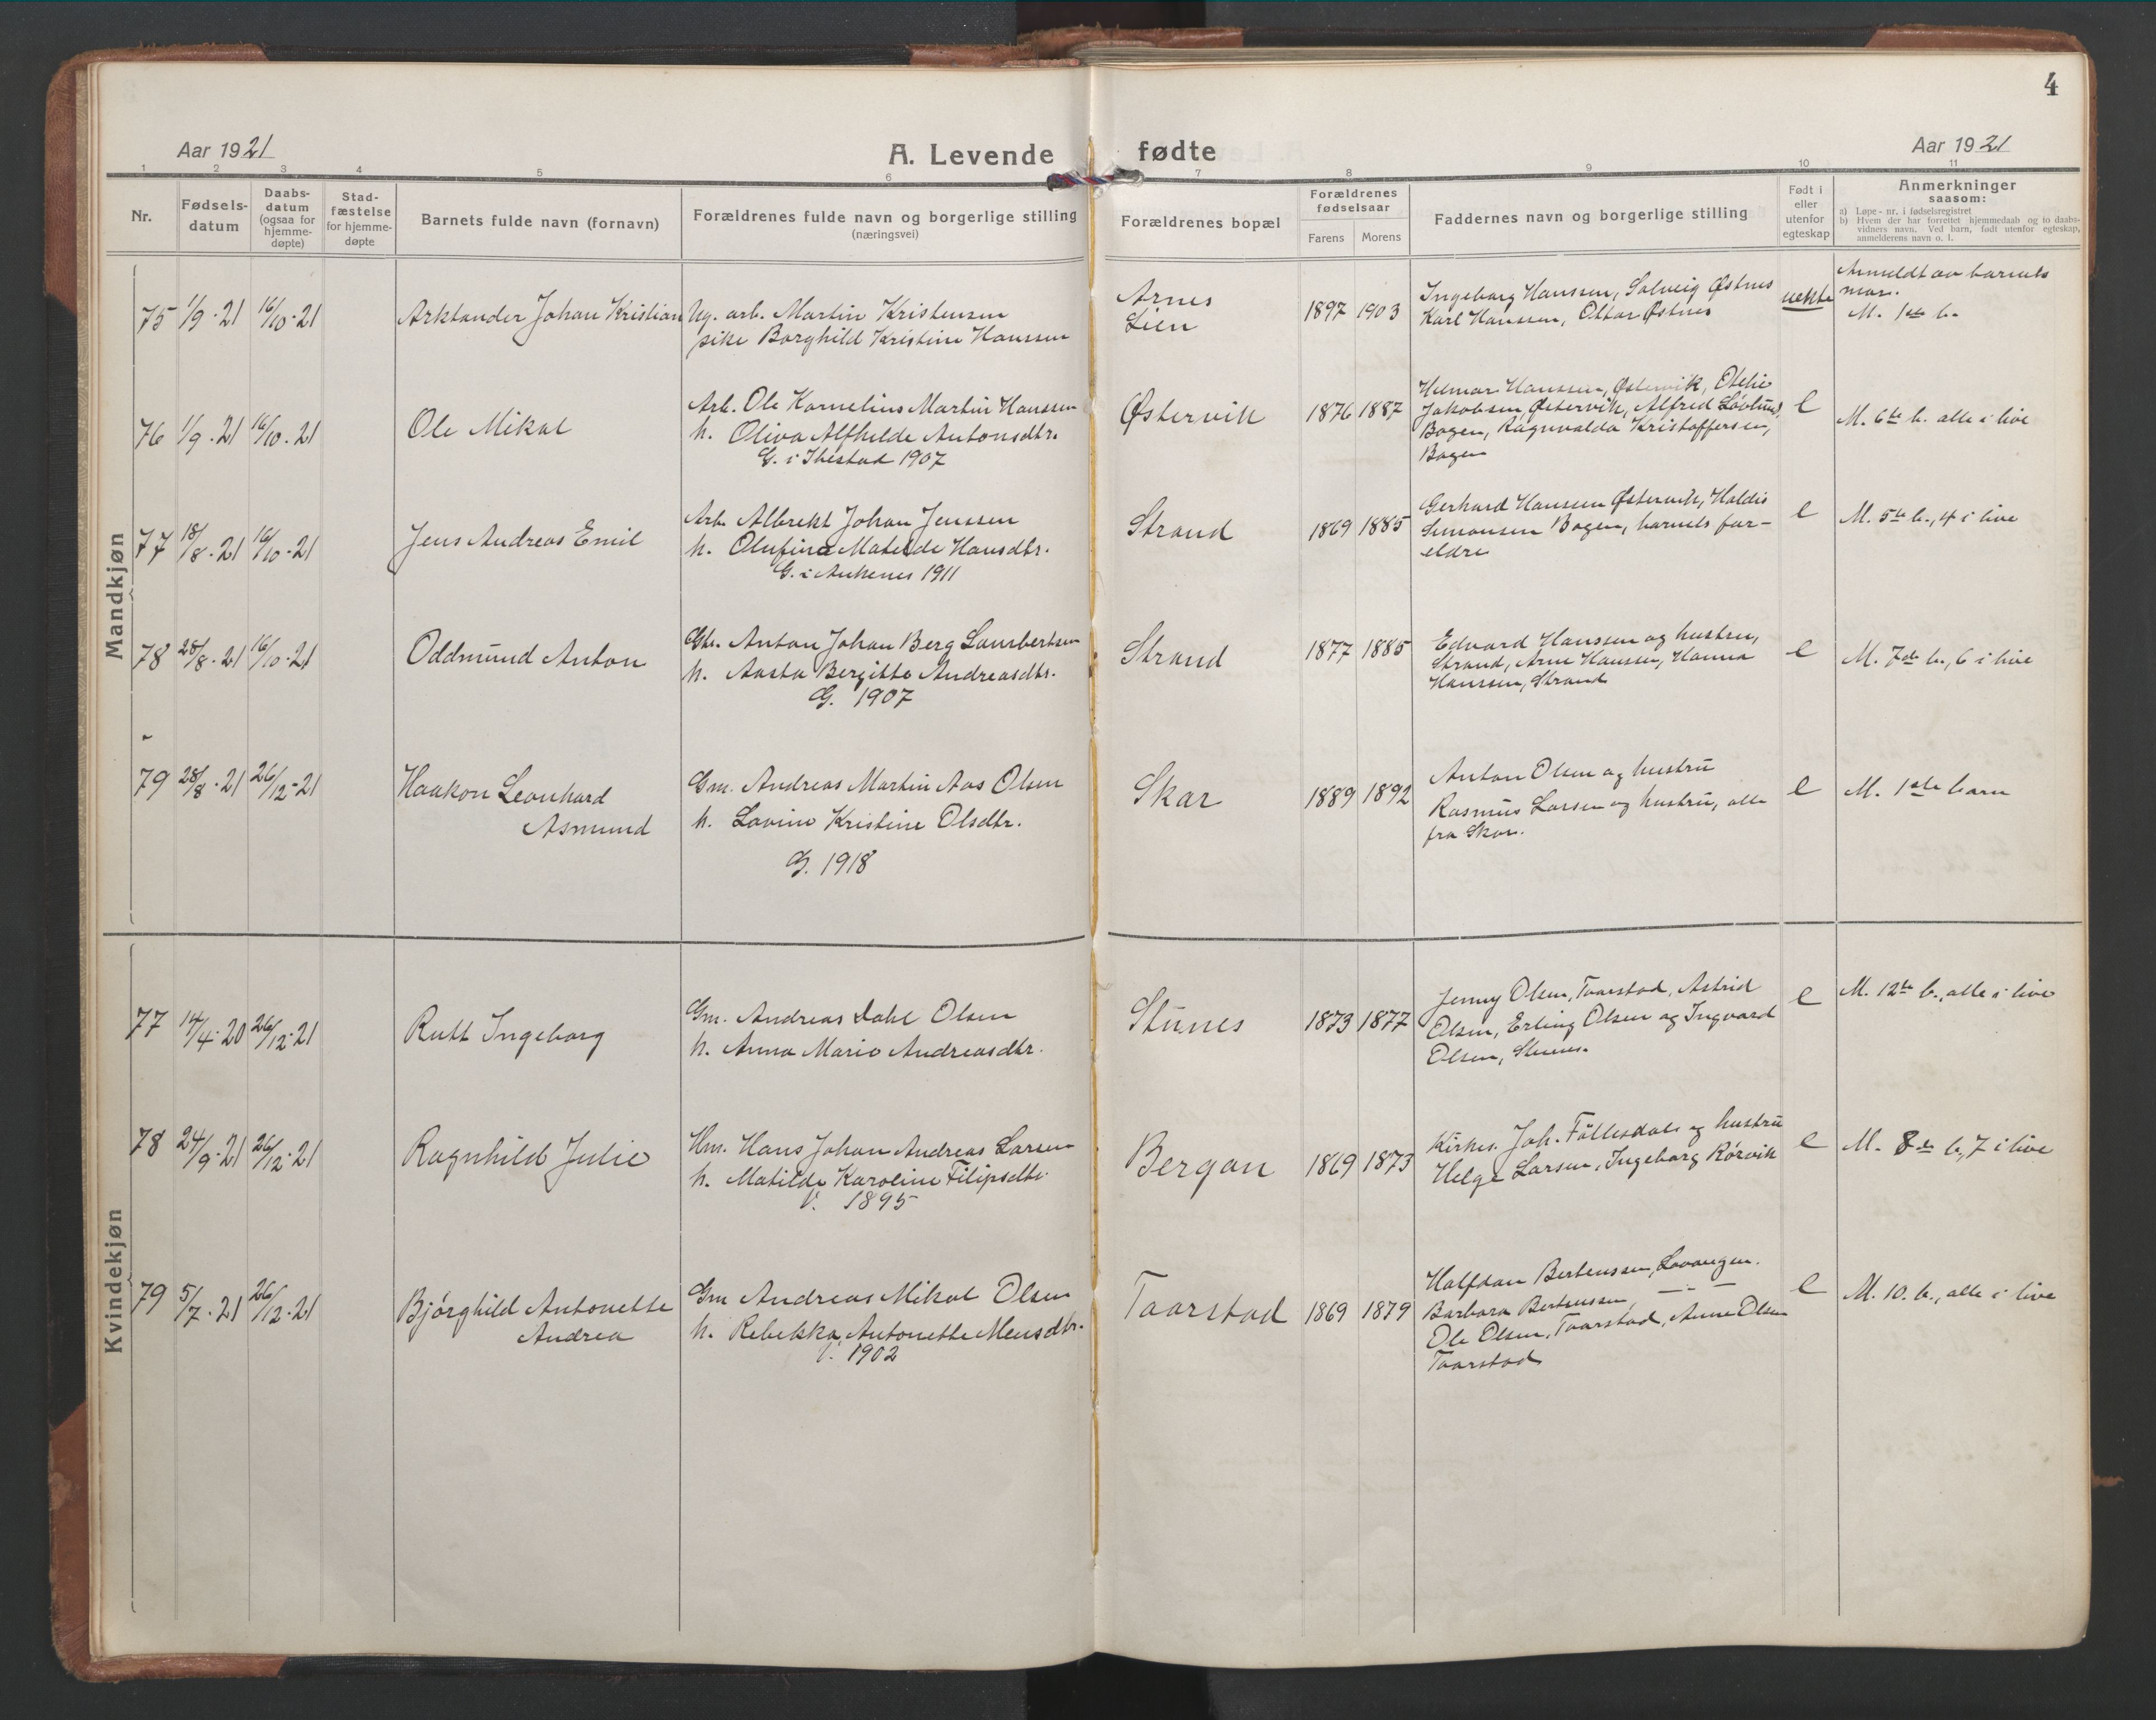 4
Aar 1921 A. Levende fødte Aar 1921
1 2 3 4 5 6 7 8 9 10 11
Nr.
Fødsels-
datum
Daabs-
datum
(ogsaa for
hjemme-
døpte)
Stad-
fæstelse
for hjemme-
døpte
Barnets fulde navn (fornavn)
Forældrenes fulde navn og borgerlige stilling
(næringsvei)
Forældrenes bopæl
Forældrenes
fødselsaar
Farens Morens
Faddernes navn og borgerlige stilling
Født i
eller
utenfor
egteskap
Anmerkninger
saasom:
a) Løpe-nr. i fødselsregistret
b) Hvem der har forrettet hjemmedaab og to daabs-
vidners navn. Ved barn, født utenfor egteskap,
anmelderens navn o. l.
Mandkjøn
75 1/9-21 16/10-21 Arktander Johan Kristian
Ug. arb. Martin Kristensen
pike Borghild Kristine Hanssen
Arnes
Lien
1897 1903
Ingeborg Hanssen, Solveig Østnes
Karl Hanssen, Ottar Østnes
uekte
Anmeldt av barnets
mor.
M. 1ste b.
76 1/9-21 16/10-21 Ole Mikal
Arb. Ole Kornelius Martin Hanssen
h. Oliva Alfhilde Antonsdtr.
G. i Ibestad 1907
Østervik
1876 1887
Hilmar Hanssen, Østervik, Otelie
Jakobsen, Østervik, Alfred Løvlund,
Bogen, Ragnvalda Kristoffersen,
Bogen
e
M. 6te b. alle i live
77 18/8-21 16/10-21 Jens Andreas Emil
Arb. Albrekt Johan Jenssen
h. Olufina Matelde Hansdtr.
G. i Ankenes 1911
Strand
1869 1885
Gerhard Hansen Østervik, Haldis
Simonsen Bogen, barnets for-
eldre
e
M. 5te b., 4 i live
78 28/8-21 16/10-21 Oddmund Anton
Gbr. Anton Johan Berg Lambertsen
h. Aasta Bergitte Andreasdtr.
G. 1907
Strand
1877 1885
Edvard Hanssen og hustru,
Strand, Arne Hanssen, Hanna
Hanssen, Strand
e
M. 7de b., 6 i live
79 28/8-21 26/12-21 Haakon Leonhard
Asmund
Gm. Andreas Martin Aas Olsen
h. Lovine Kristine Olsdtr.
G. 1918
Skar
1889 1892
Anton Olsen og hustru
Rasmus Larsen og hustru, alle
fra Skar.
e
M. 1ste barn
Kvindekjøn
77 14/4-20 26/12-21 Rutt Ingeborg
Gm. Andreas Dahl Olsen
h. Anna Marie Andreasdtr.
Stunes
1873 1877
Jenny Olsen, Taarstad, Astrid
Olsen, Erling Olsen og Ingvard
Olsen, Stunes.
e
M. 12te b., alle i live
78 24/9-21 26/12-21 Ragnhild Julie
Hm. Hans Johan Andreas Larsen
h. Matilde Karoline Filipsdtr.
V. 1895
Bergan
1869 1873
Kirkes. Joh. Föllesdal og hustru
Helge Larsen, Ingeborg Rørvik
e
M. 8de b., 7 i live
79 5/7-21 26/12-21 Bjørghild Antonette
Andrea
Gm Andreas Mikal Olsen
h. Rebekka Antonette Mensdtr.
V. 1902
Taarstad
1869 1879
Halfdan Bertenssen, Lavangen.
Barbara Bertenssen, — " —
Ole Olsen, Taarstad, Anne Olsen
Taarstad
e
M. 10. b., alle i live